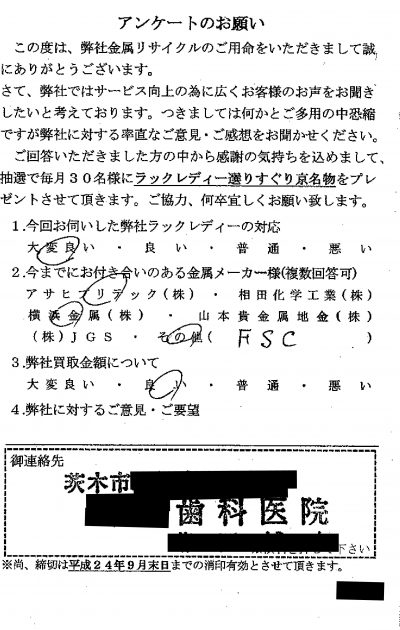 アンケートのお願い
この度は、弊社金属リサイクルのご用命をいただきまして誠
にありがとうございます。
さて、弊社ではサービス向上の為に広くお客様のお声をお聞き
したいと考えております。つきましては何かとご多用の中恐縮
ですが弊社に対する率直なご意見・ご感想をお聞かせください。
ご回答いただきました方の中から感謝の気持ちを込めまして、
抽選で毎月30名様にラックレディー選りすぐり京名物をプレ
ゼントさせて頂きます。ご協力、何卒宜しくお願い致します。
1.今回お伺いした弊社ラックレディーの対応
大変良い・良い・普通・悪い
2.今までにお付き合いのある金属メーカー様(複数回答可)
アサヒプリテック(株)・相田化学工業(株)
横浜金属(株)・山本貴金属地金(株)
(株)JGS・その他( FSC )
3.弊社買取金額について
大変良い・良い・普通・悪い
4.弊社に対するご意見・ご要望
御連絡先
茨木市
歯科医院
下さい
※尚、締切は平成24年9月末日までの消印有効とさせて頂きます。